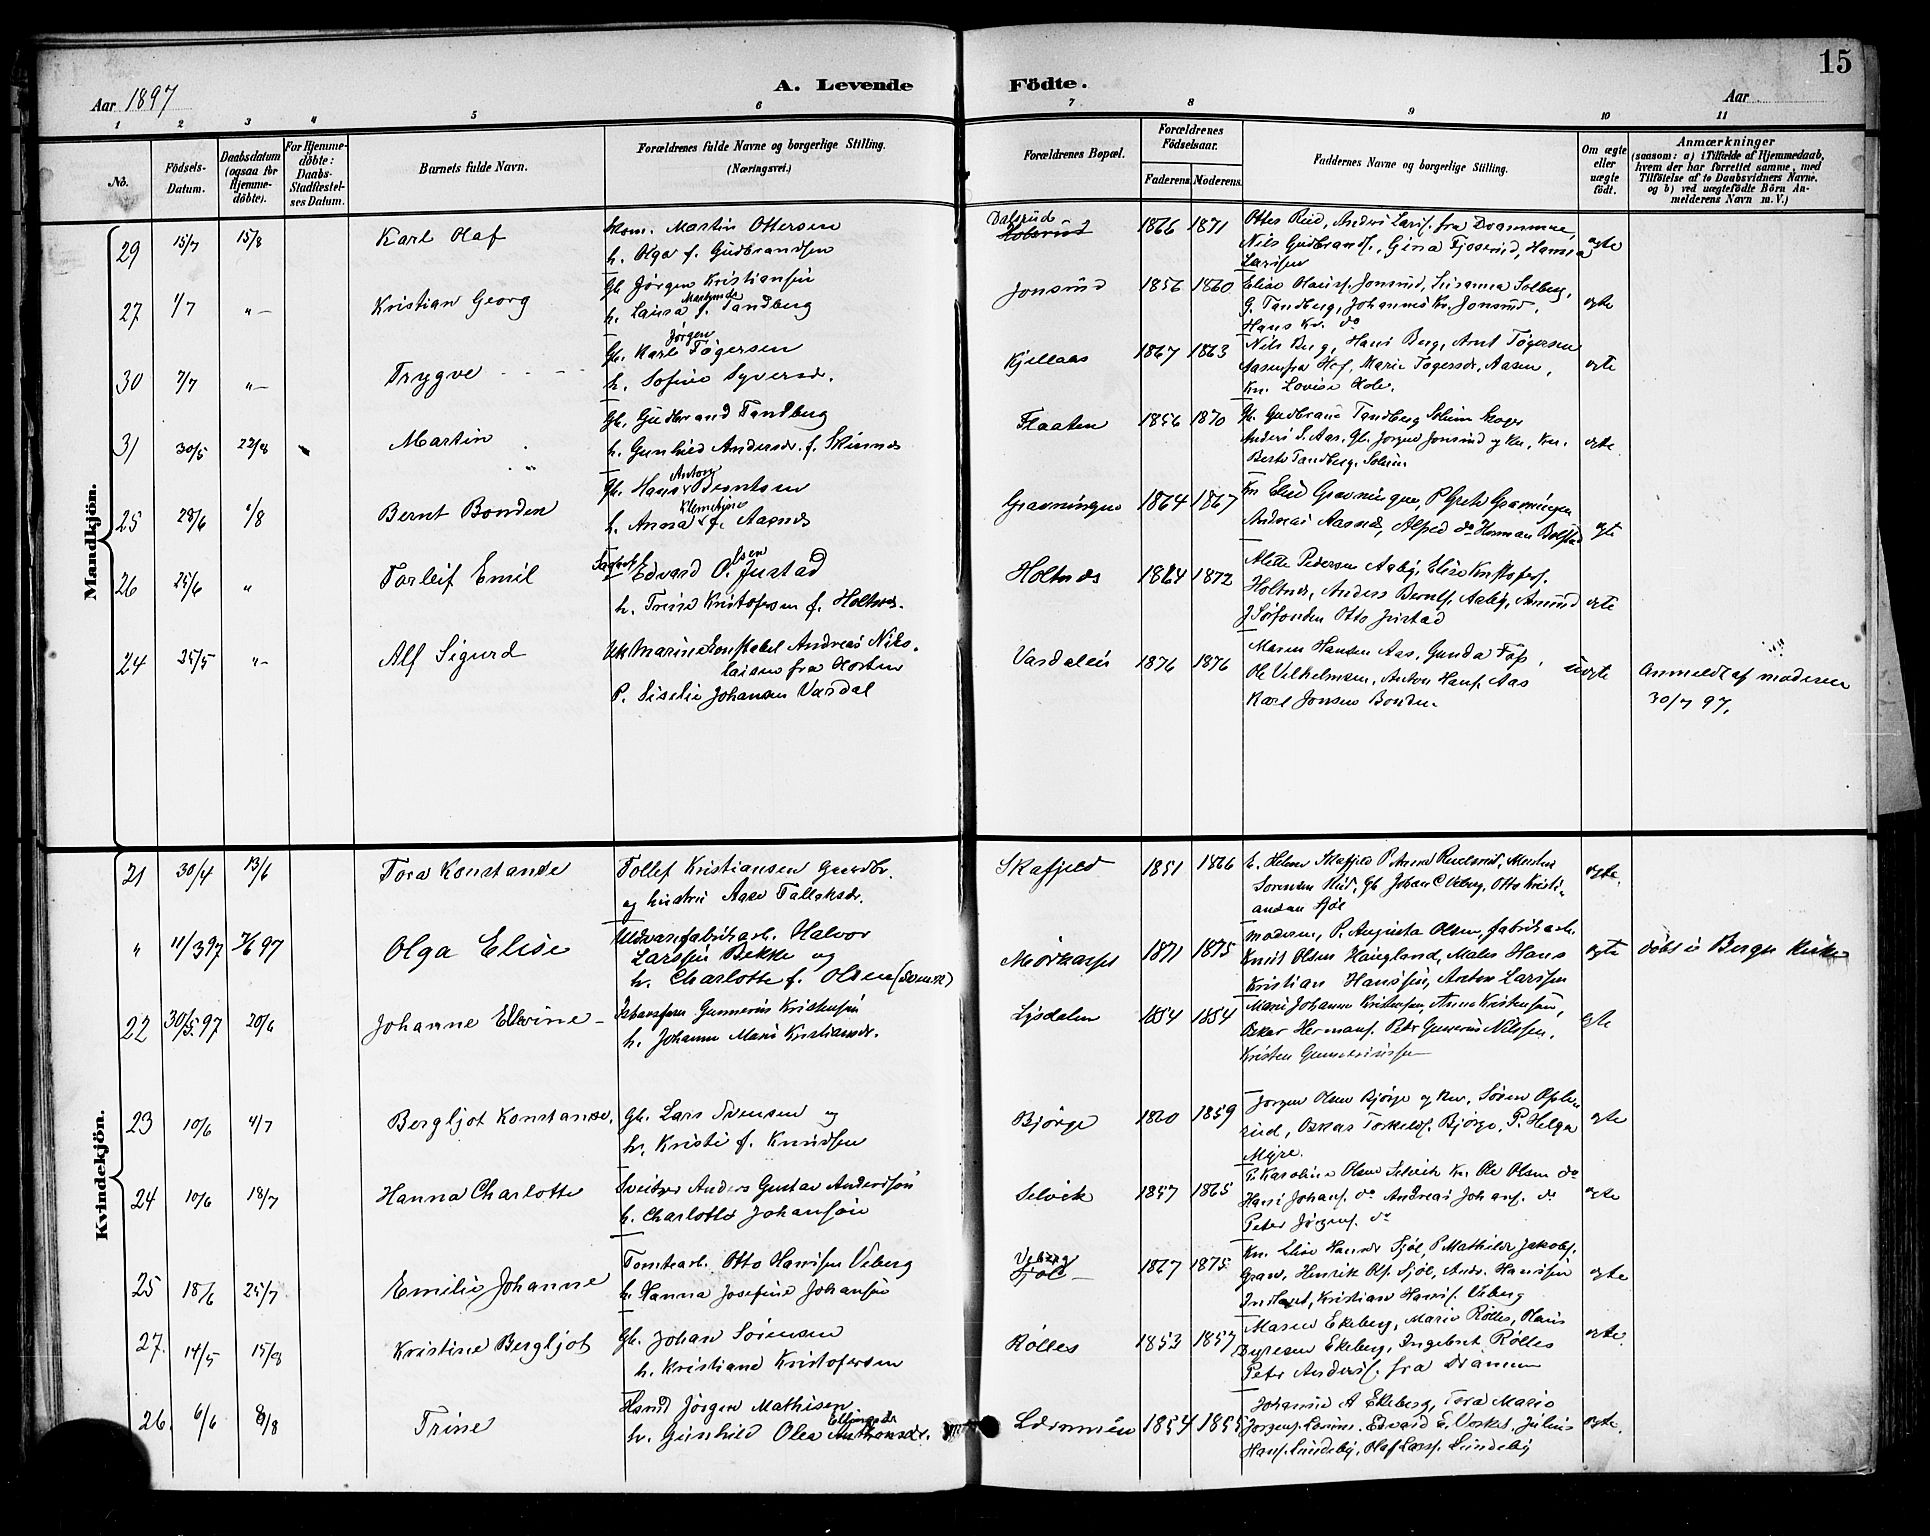 15
Aar 1897
A. Levende Födte.
Aar
1 2 3 4 5 6 7 8 9 10 11
No.
Födsels-Datum.
Daabsdatum (ogsaa for Hjemme-döbte).
For Hjemme-döbte: Daabs-Stadfæstel-ses Datum.
Barnets fulde Navn.
Forældrenes fulde Navne og borgerlige Stilling.
(Næringsvei.)
Forældrenes Bopæl.
Forældrenes Födselsaar.
Faderens. Moderens.
Faddernes Navne og borgerlige Stilling.
Om ægte eller uægte födt.
Anmærkninger
(saasom: a) i Tilfælde af Hjemmedaab,
hvem der har forrettet samme, med
Tilföielse af to Daabsvidners Navne.
og b) ved uægtefödte Börn An-
melderens Navn m. V.)
Mandkjön.
29 15/7 15/8 Karl Olaf
Martin Ottersen
h. Olga f. Gudbrandsen
Dalsrud
1866 1871
Nils Gudbrands., Gina
Larssen
ægte
27 1/7 "- Kristian Georg
Gb. Jørgen Kristiansen
h. Laura Mathilde f. Tandberg
Jonsrud 1856 1860
Elise Olauss. Jonsrud, Susanna Solberg,
G. Tandberg, Johannes Kr. Jonsrud,
Hans Kr. do
ægte
30 7/7 "- Trygve
Gb. Karl Jørgen Tøgersen
h. Sofie Syversd.
Kjellaas 1867 1863
Nils Berg, Hans Berg, Arnt Tøgersen
Aasen fra Hof, Marie Tøgersdr. Aasen,
Kn. Lovise Hole.
ægte
31 30/5 22/8 Martin
Gb. Gudbrand Tandberg
h. Gunhild Andersdr. f. Skisnes
Flaaten 1856 1870
Gb. Gudbrand Tandberg Solum Skoger
Anders S. Aas, Gb. Jørgen Jonsrud og Kn., Kn.
Berte Tandberg, Solum
ægte
25 28/6 1/8 Bernt Bonden
Gb. Hans Anton Berntsen
h. Anna f. Aasnes
Gravningen 1864 1867
Kn Elise Gravningen, P. Grete Gravningen
Andreas Aasnes, Alfred do Herman Bolstad
ægte
26 25/6 " Torleif Emil
Edvard Olsen Justad
h. Trine Kristofersen f. Holtnes.
Holtnes 1864 1872
Mette Pedersen Aaby, Elise Kristofers.
Holtnes, Anders Bernts. Aaby, Amund
J Sørfonden Otto Justad
ægte
24 25/5 "- Alf Sigurd
Uk Marinekonstabel Andreas Niko-
laisen fra Horten
P. Siselie Johansen Vasdal
Vasdalen 1876 1876
Maren Hansen Aas, Gunda Foss,
Ole Vilhelmsen, Anton Hans. Aas
Karl Jonsen Bonden
uægte
Anmeldt af moderen
30/7 97.
Kvindekjön.
21 30/4 13/6 Tora Konstanse
Tollef Kristiansen Gaardbr.
og hustru Aase Tolleksdr.
Skafjeld 1851 1866
E. Helene Skafjeld P. Anna Rueslaad, Morten
Sørensen Rud, Gb. Johan C Veberg, Otto Kristi-
ansen Sjøl
ægte.
" 11/3 97 7/6 97 Olga Elise
Uldvarefabrikarb. Halvor
Larssen Bekke og
h. Charlotte f. Olsen (svensk)
1871 1875
Moderen, P. Augusta Olsen, fabrikarb.
Knut Olsen Haugland, Maler Hans
Kristian Hanssen, Anton Larssen
ægte
døbt i Bergn Kirke
22 30/5 97 20/6 Johanne Elevine
Gunnerius Kristensen
h. Johanne Marie Kristiansdr.
Lysdalen 1854 1854
Marie Johanne Kristensen, Anna Kristensen,
Oskar Hermans. Peder Gunnerius Nilssen,
Kristen Gunneriussen
ægte
23 10/6 4/7 Bergljot Konstanse.
Gb. Lars Svensen og
h. Kristi f. Knudsen
Bjørge 1860 1859
Jørgen Olsen Bjørge og Kn., Søren
rud, Oskar Torkelds. Bjørge, P. Helga
Myre.
ægte
24 10/6 18/7 Hanna Charlotte
Sveitzer Anders Gustav Anderssøn
h. Charlotte Johansøn
Selvik 1857 1865
P. Karoline Olsen Selvik Kn. Ole Olsen do
Hans Johans. do Andreas Johans. do
Peter Jørgens. do
ægte
25 18/6 25/7 Emilie Johanne
Tomtearb. Otto Hanssen Veberg
h. Hanna Josefine Johansøn
Veberg
1867 1875
Kn. Elise Hansdr Sjøl, P. Mathilde Jakobs.
Grav, Henrik Ols. Sjøl, Andr. Hanssen
Kristian Hans. Veberg
ægte
27. 14/5 15/8 Kristine Bergljot
Gb. Johan Sørensen
h. Kristiane Kristofersen
Rølles 1853 1857
Maren Ekeberg, Marie Rølles, Olaus
Syresen Ekeberg, Ingebret Rølles
Peter Anders. fra Drammen
ægte.
26. 6/6 8/8 Trine
Hsmd Jørgen Mathisen
h. Gunhild Olea Ellingsdr Antonsdr.
1854 1855
Johanne A Ekeberg, Tora Marie
Jørgens. Edvard E. Vosket, Julius
Hans. Lundeby, Olaf Larss. Lundeby
ægte.